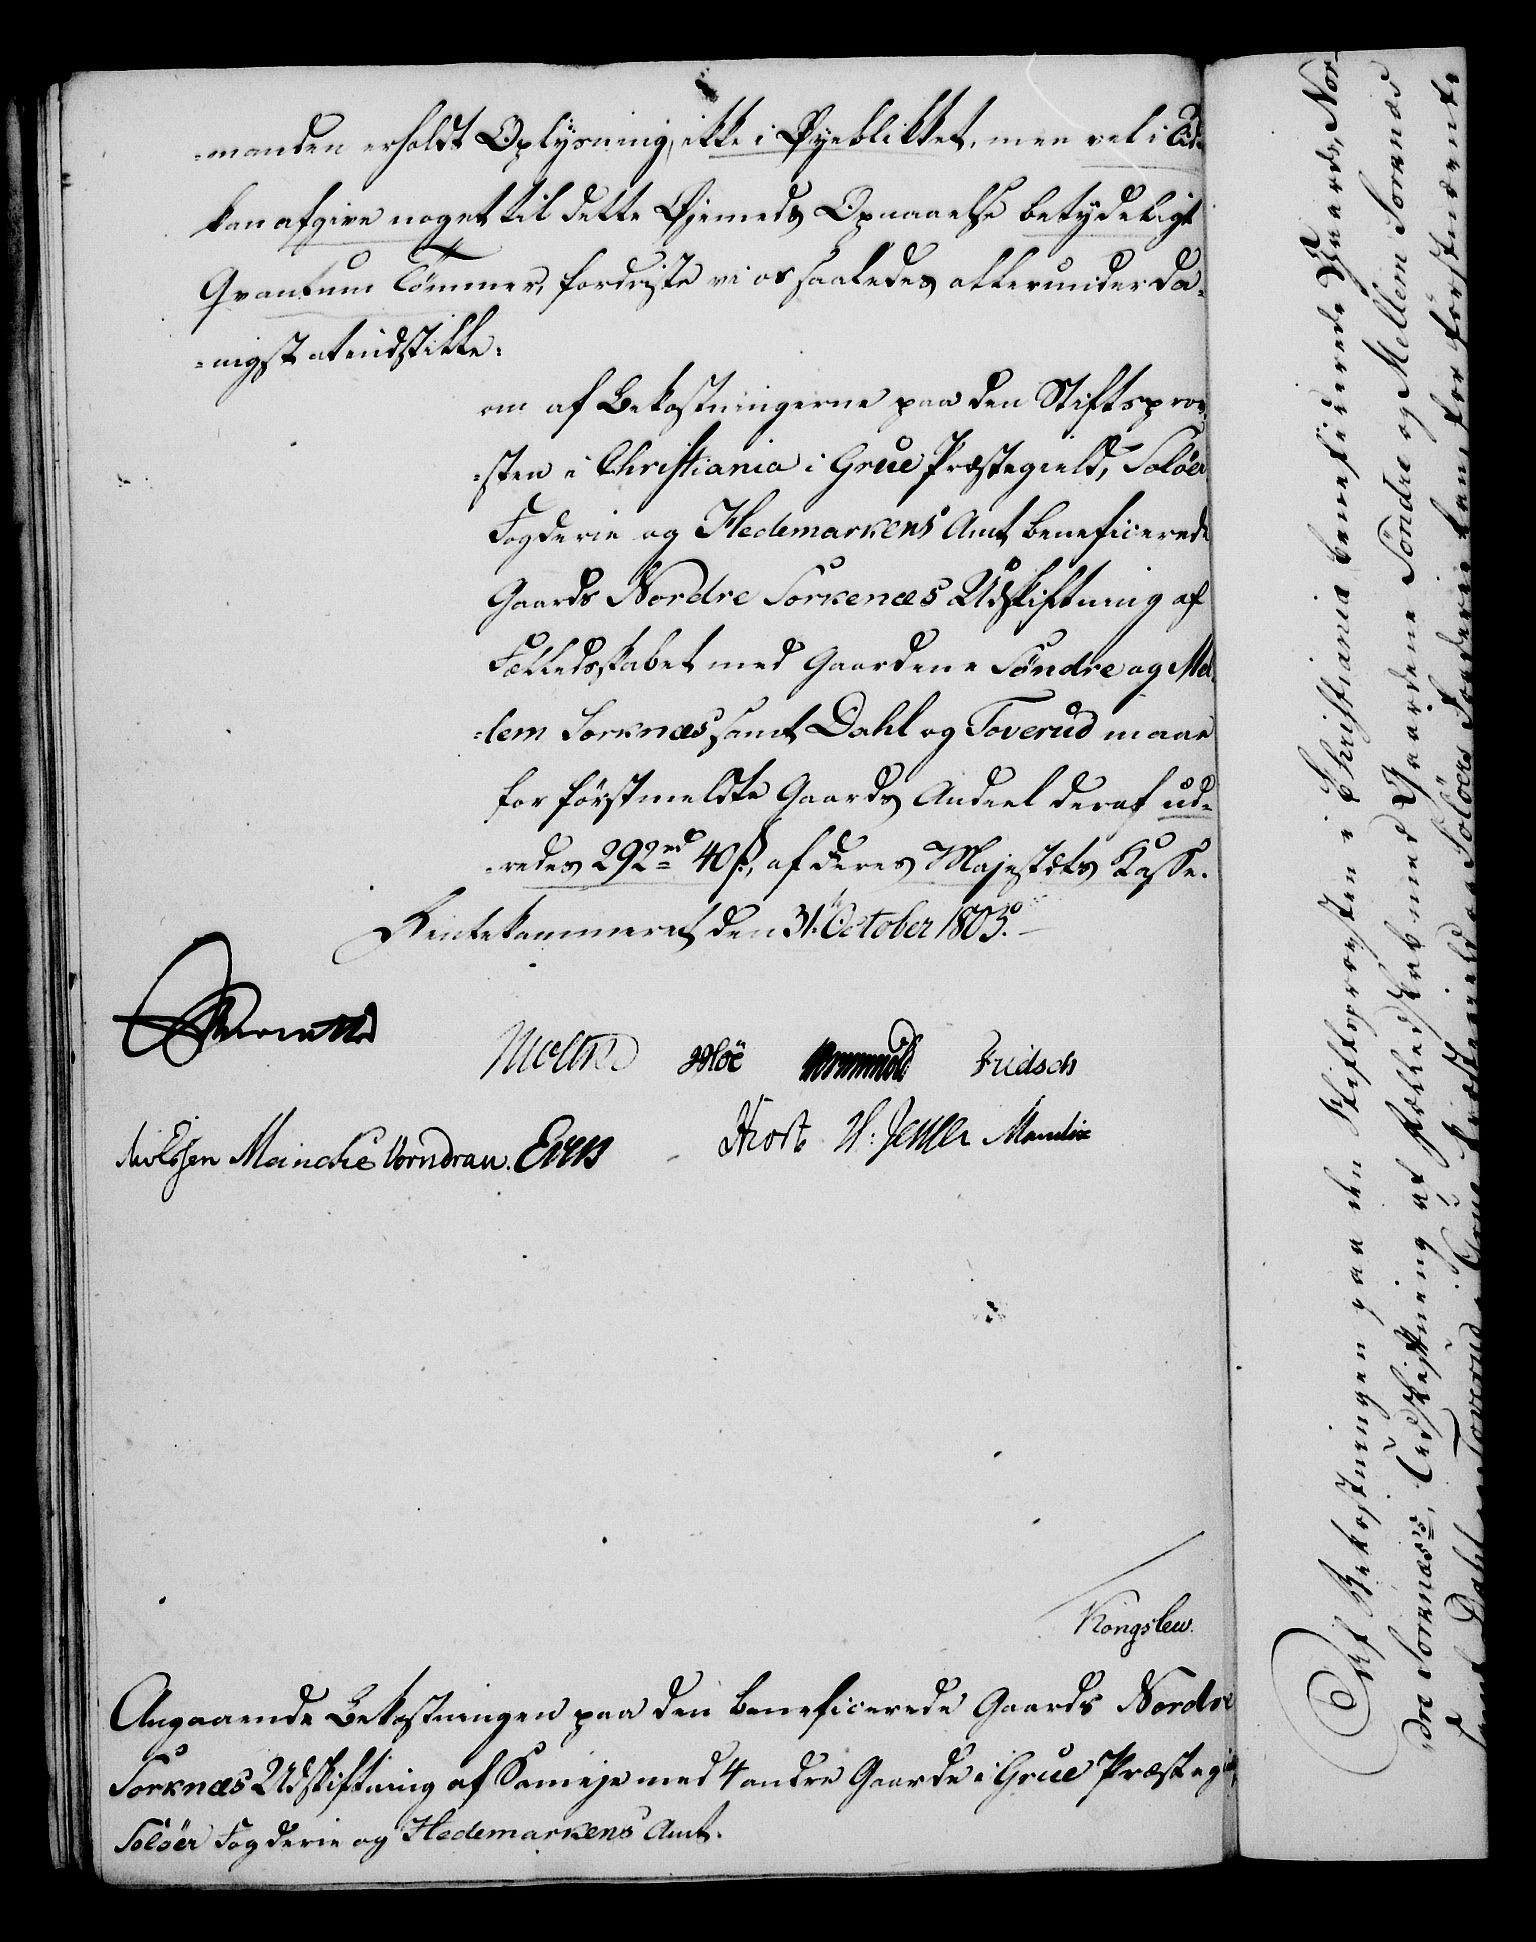 -manden erholdt Oplysning, ikke i Øyeblikket, men vel i Tid-
kan afgive noget til dette Øjemeds Opnaaelse betydeligt
Qvantum Tömmer, fordriste vi os saaledes allerunderda-
-nigst at indstille:
om af Bekostningerne paa den Stiftsprov-
-sten i Christiania i Grue Præstegield, Soløer
Fogderie og Hedemarkens Amt beneficerede
Gaards Nordre Sorkenæs Udskiftning af
Fælledsskabet med Gaardene Söndre og Mel-
-lem Sorknæs samt Dahl og Toverud maae
for förstmeldte Gaards Andeel deraf ud-
-redes 292 rd 40 s, af Deres Majestæts Kasse.
Rentekammeret den 31. October 1805.
Moltke Hoë Wormskiold Fridsch
Meincke Vorndran.
Hvost W: Mandix
Kongslew.
Angaaende Bekostningen paa den beneficerede Gaards Nordre
Sorknæs Udskiftning af Sameje med 4 andre Gaarde i Grue Præstegi
Soløer Fogderie og Hedemarkens Amt.
Af Bekostningen paa den Stiftsprovsten i Christiania beneficerede Gaards, Nor-
dre Sorknæs's, Udskiftning af Fælledsskab med Gaardene Söndre og Mellem Sorknæs
samt Dahl og Toverud i Grue Præstegield og Soløers Fogderie kan, for förstnævnte